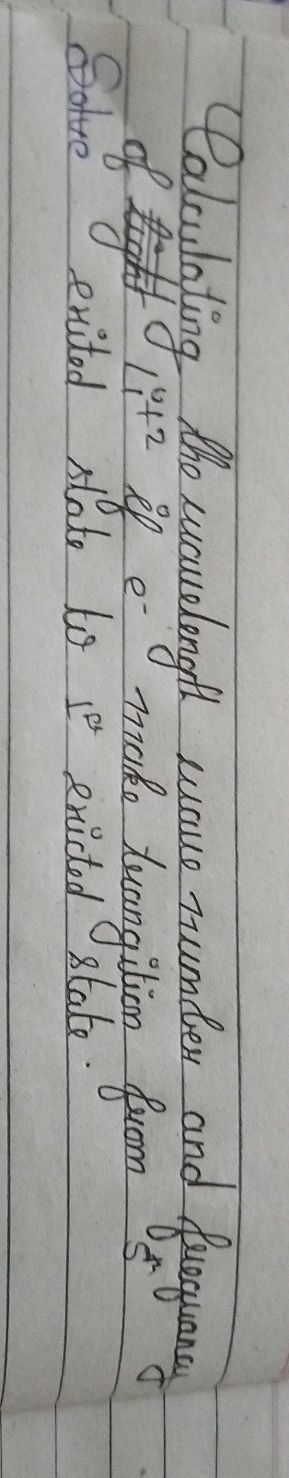 Calculating the wavelength wave number and frequancy
of Li+2 if e- make trangition from 5th
exited state to 1st exicted state.
Solve